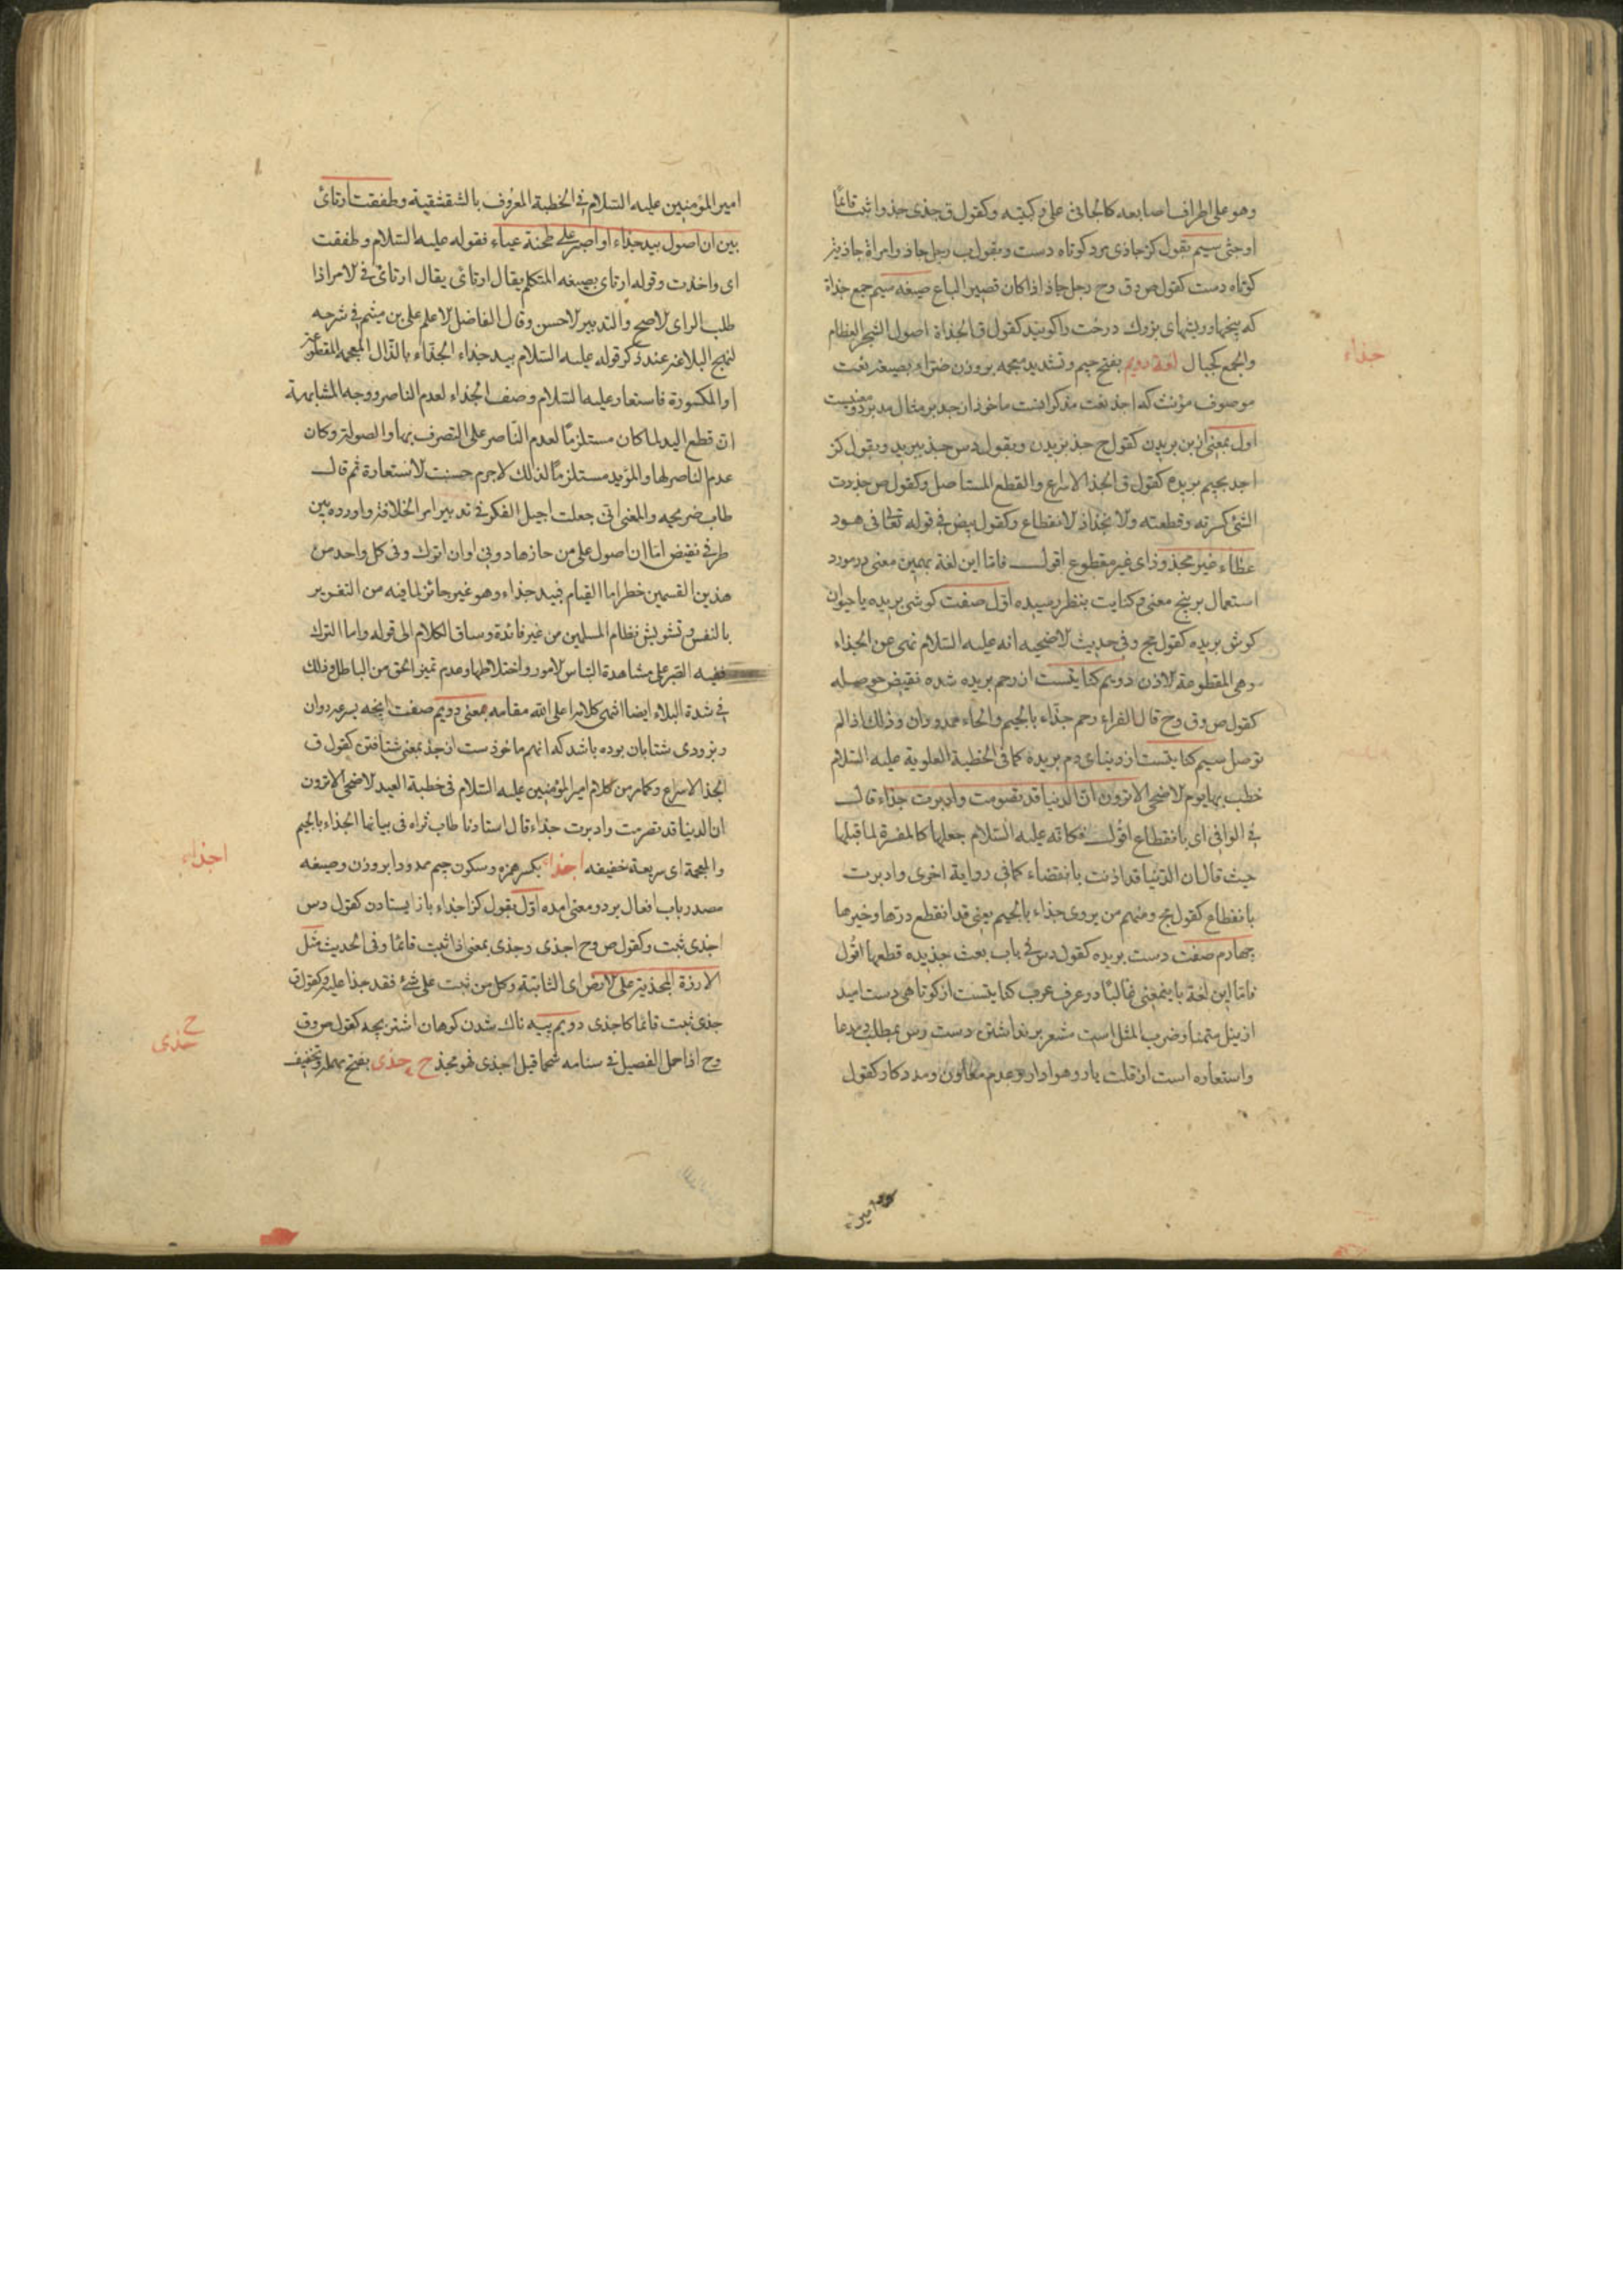 وهو على اطراف اصابعه كالجاثى على ركبتيه وكقول ق جذى جذوا ثبت قائما
اوجثى سيم بقول كز جاذى مرد كوتاه دست وبقول ب رجل جاذ وامراة جاذية
كوتاه دست كقول ص وق وح رجل جاذ اذا كان قصير الباع صيغه سيم جمع جذاة
كه بيخها وريشهاى بزرك درخت را كويند كقول ق الجذاة اصول الشجر العظام
والجمع كجبال لغة دويم بفتح جيم وتشديد معجمه بروزن ضراء بصيغه نعت
موصوف مؤنث كه اجذ نعت مذكر انست ماخوذ از جذ بر مثال مد بر دو معنيست
اول بمعنى از بن بريدن كقول ح جذ بريدن وبقول دس جذ ببريد وبقول كز
اجذ بجيم بريده كقول ق الجذ الاسراع والقطع المستاصل وكقول ص جذذت
الشئ كسرته وقطعته والانجذاذ الانقطاع وكقول بيض فى قوله تعالى فى هود
عطاء غير مجذوذ اى غير مقطوع اقول فاما اين لغة بهمين معنى در مورد
استعمال بر پنج معنى وكنايت بنظر رسيده اول صفت كوش بريده يا حيوان
كوش بريده كقول مج وفى حديث الاضحيه انه عليه السلام نهى عن الجذاء
وهى المقطوعة الاذن دويم كنايتست از رحم بريده شده نقيض حوصله
كقول ص وق وح قال الفراء رحم جذاء بالجيم والحاء ممدودان وذلك اذا لم
توصل سيم كنايتست از دنياى دم بريده كما فى الخطبة العلوية عليه السلام
خطب بها يوم الاضحى الا ترون ان الدنيا قد تصرمت وادبرت جذاء قال
فى الوافى اى بانقطاع اقول فكانه عليه السلام جعلها كالمفسرة لما قبلها
حيث قال ان الدنيا قد اذنت بانقضاء كما فى رواية اخرى وادبرت
بانقطاع كقول مج ومنهم من يروى جذاء بالجيم يعنى قد انقطع درها وخيرها
چهارم صفت دست بريده كقول دس فى باب بعث جذيده قطعها اقول
فاما اين لغة باينمعنى غالبا در عرف عرب كنايتست از كوتاهى دست اميد
از نيل متمنا وضرب المثل است مشعر بر نداشتن دست رس بمطلب ومدعا
واستعاره است از قلت يار وهوادار وعدم معاون ومددكار كقول
امير
جذاء
امير المؤمنين عليه السلام فى الخطبة المعروف بالشقشقية وطفقت ارتائ
بين ان اصول بيد جذاء او اصبر على طخية عمياء فقوله عليه السلام وطفقت
اى واخذت وقوله ارتاى بصيغه المتكلم يقال ارتائ يقال ارتائ فى الامر اذا
طلب الراى الاصح والتدبير الاحسن وقال الفاضل الاعلم على بن ميثم فى شرحه
لنهج البلاغه عند ذكر قوله عليه السلام بيد جذاء الجذاء بالذال المعجمه المقطوعة
او المكسورة فاستعار عليه السلام وصف الجذاء لعدم الناصر ووجه المشابهة
ان قطع اليد لما كان مستلزما لعدم الناصر على التصرف بها والصولة وكان
عدم الناصر لها والمؤيد مستلزما لذلك لاجرم حسنت الاستعارة ثم قال
طاب ضريحه والمعنى انى جعلت اجيل الفكر فى تدبير امر الخلافة واوردده بين
طرفى نقيض اما ان اصول على من حازها دونى او ان اترك وفى كل واحد من
هذين القسمين خطر اما القيام فبيد جذاء وهو غير جائز لما فيه من التغرير
بالنفس وتشويش نظام المسلمين من غير فائدة وساق الكلام الى قوله واما الترك
ففيه الصبر على مشاهدة التباس الامور واختلاطها وعدم تميز الحق من الباطل وذلك
فى شدة البلاء ايضا انتهى كلامه اعلى الله مقامه معنى دويم صفت انچه بسرعه روان
وبزودى شتابان بوده باشد كه انهم ماخوذست از جذ بمعنى شتافتن كقول ق
الجذ الاسراع وكما مر من كلام امير المؤمنين عليه السلام فى خطبة العيد الاضحى الا ترون
ان الدنيا قد تصرمت وادبرت جذاء قال استادنا طاب ثراه فى بيانها الجذاء بالجيم
والمعجمة اى سريعة خفيفه اجذاء بكسر همزه وسكون جيم ممدودا بروزن وصيغه
مصدر باب افعال بر دو معنى امده اول بقول كز اجذاء باز ايستادن كقول دس
اجذى ثبت وكقول ص وح اجذى وجذى بمعنى اذا ثبت قائما وفى الحديث مثل
الارزة المجذية على الارض اى الثابتة وكل من ثبت على شئ فقد جذا عليه وكقول ق
جذى ثبت قائما كاجذى دويم پيه ناك شدن كوهان اشتر بچه كقول ص وق
وح اذا حمل الفصيل فى سنامه شحما قيل اجذى فهو مجذ ح حذى بفتح مهمله وتخفيف
اجذاء
ح
حذى